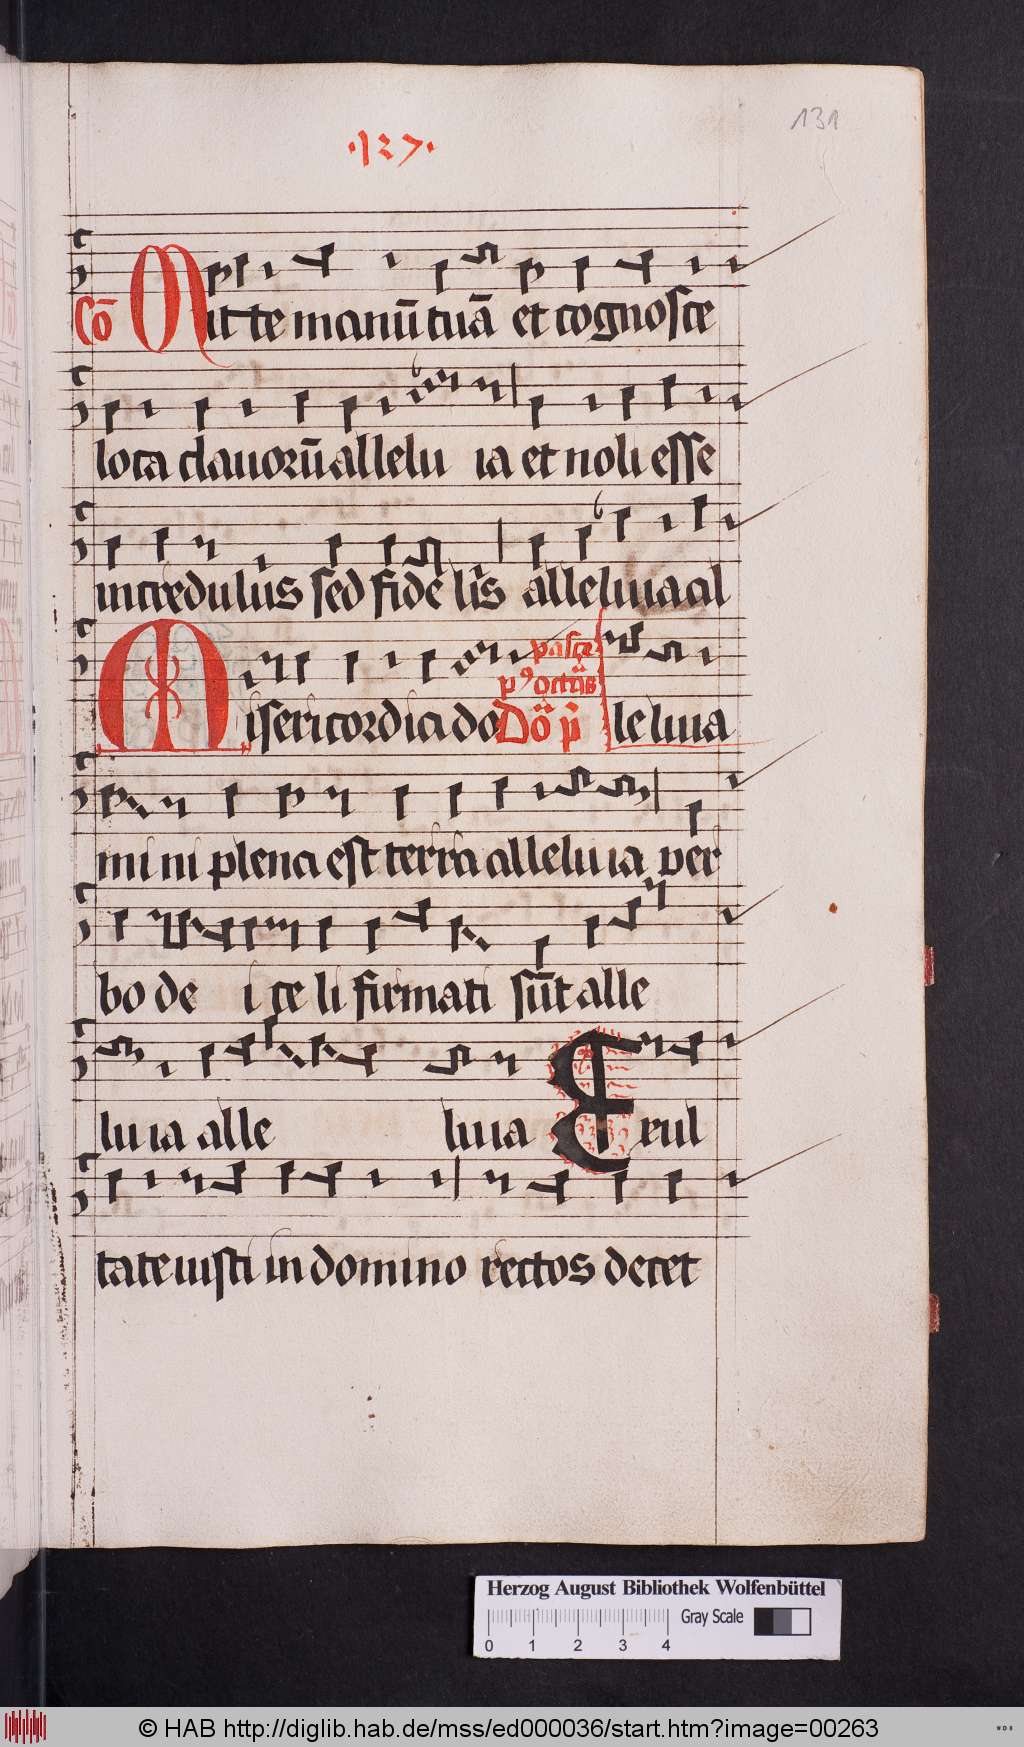 131
·127·
Cō Mitte manū tuā et cognosce
loca clauorū allelu ia et noli esse
incredulus sed fidelis alleluia al
pasce
p⁹ octas
Misericordia do Dō p leluia
mini plena est terra alleluia ver
bo de i celi firmati sūt alle
luia alle luia Exul
tate iusti in domino rectos decet
Herzog August Bibliothek Wolfenbüttel
Gray Scale
0 1 2 3 4
© HAB http://diglib.hab.de/mss/ed000036/start.htm?image=00263